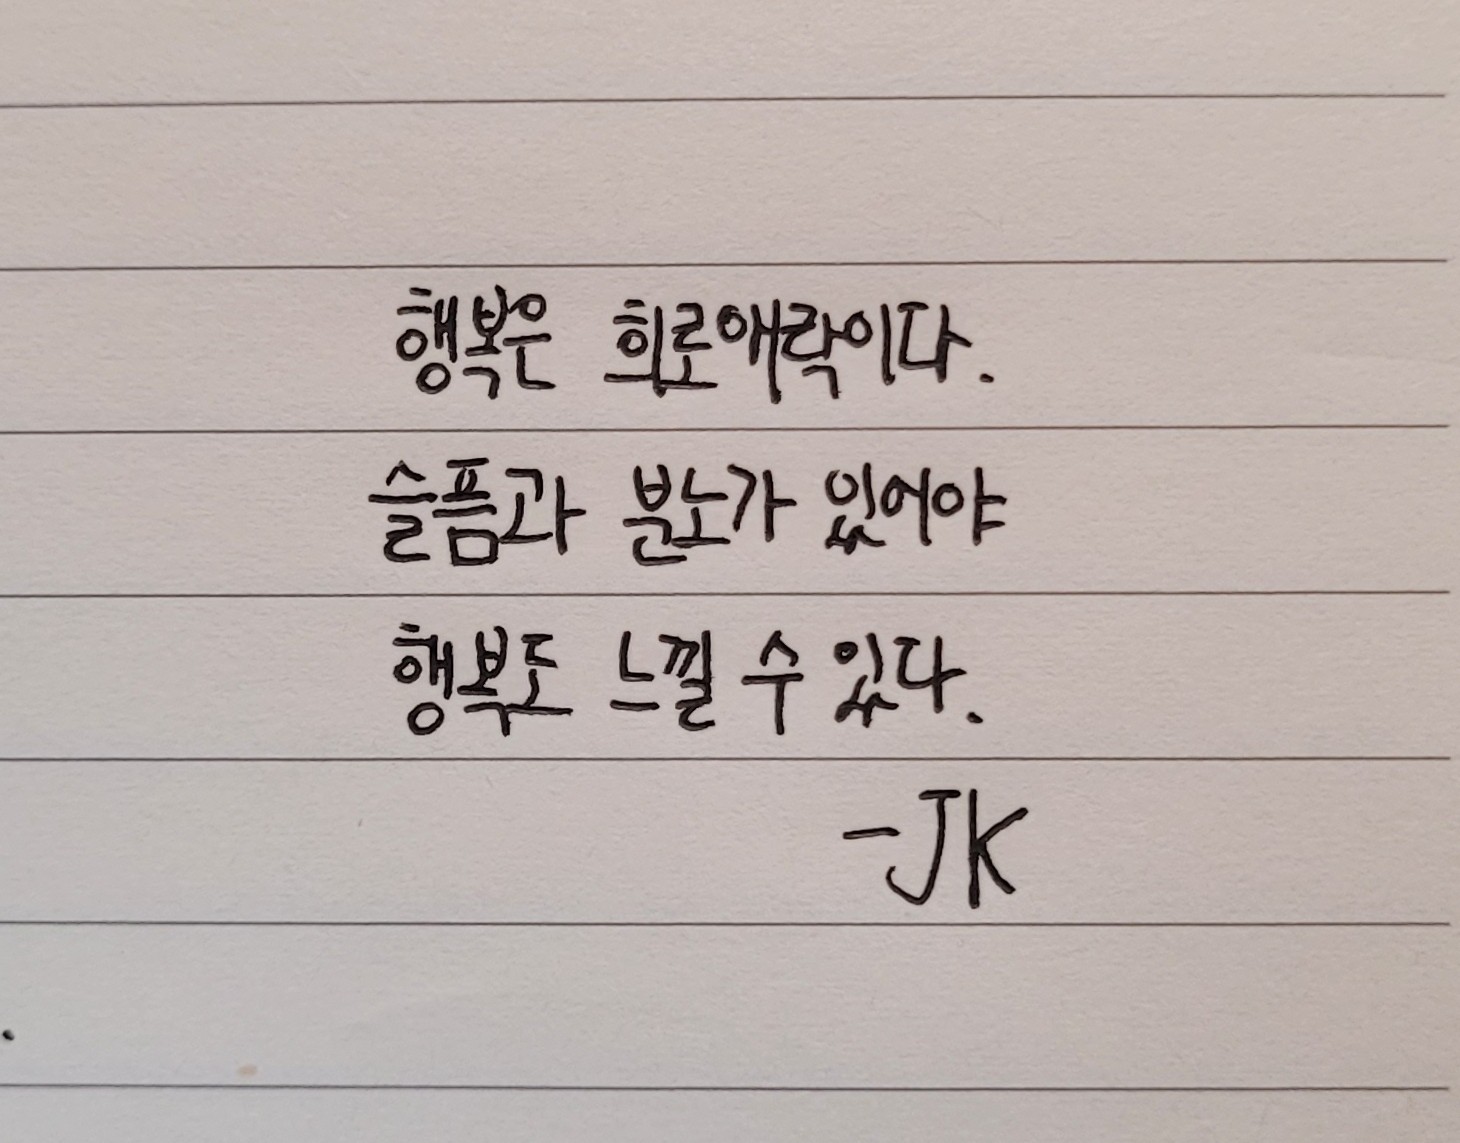 행복은 희로애락이다.
슬픔과 분노가 있어야
행복도 느낄 수 있다.
-JK